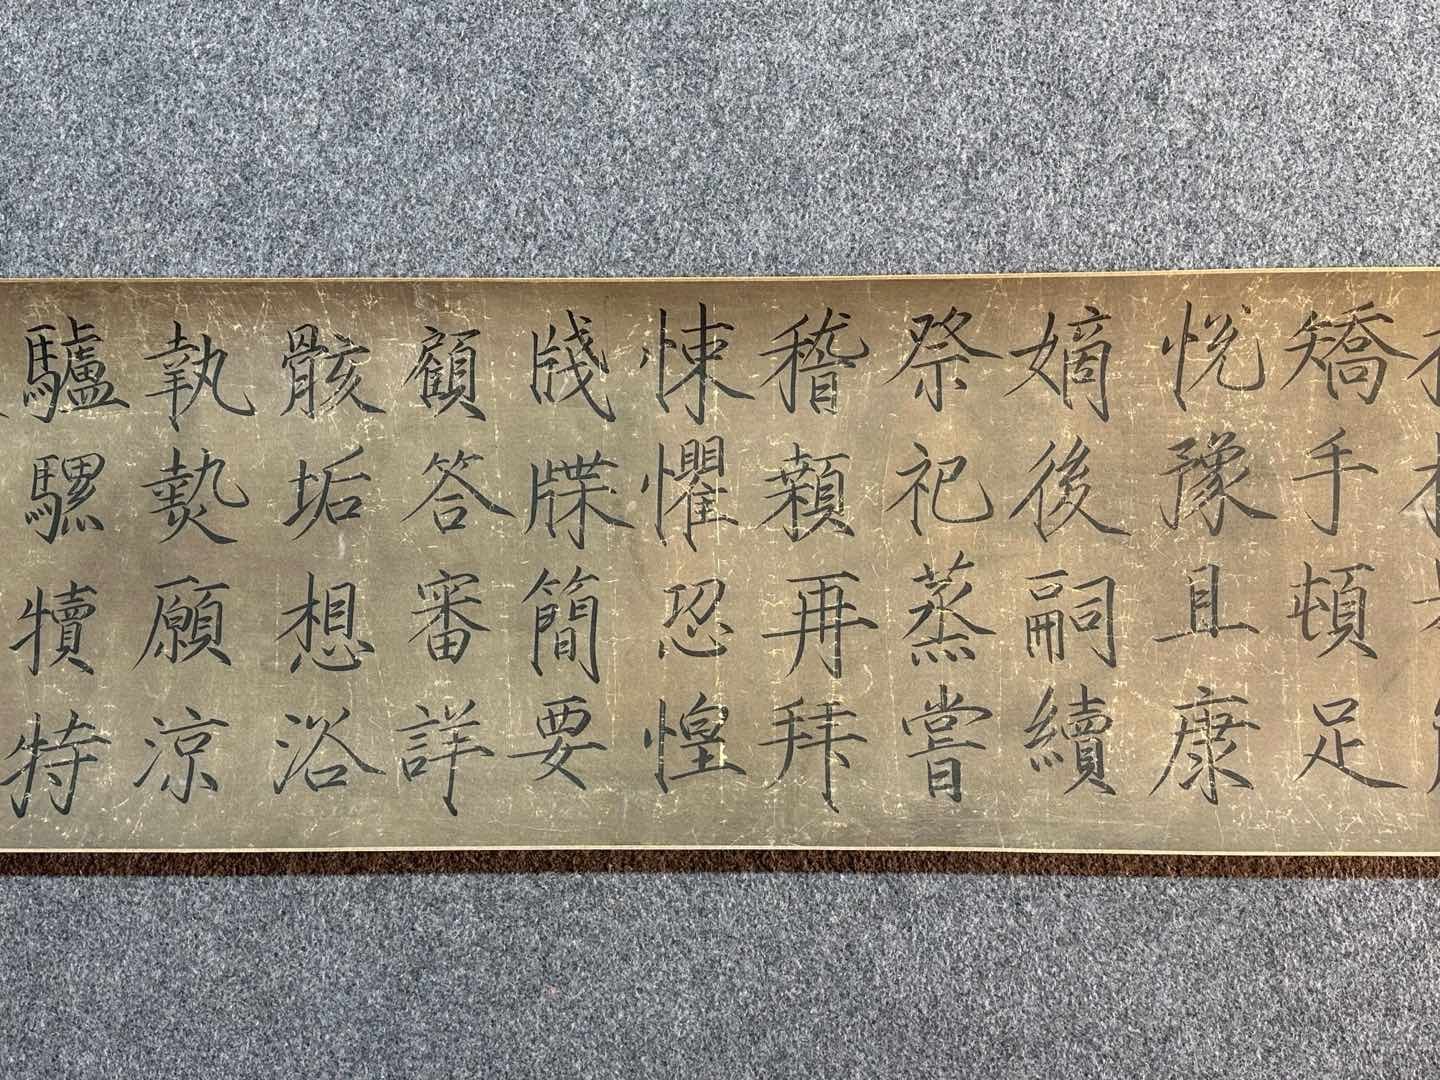 矯手頓足
悅豫且康
嫡後嗣續
祭祀蒸嘗
稽顙再拜
悚懼恐惶
牋牒簡要
顧答審詳
骸垢想浴
執熱願涼
驢騾犢特